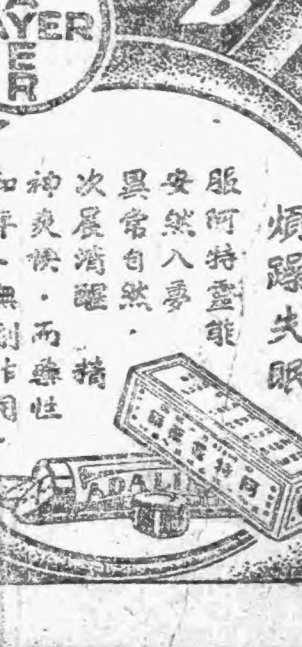 AYER
煩躁失眠
服阿特靈能
安然入夢
異常自然．
次晨清醒 精
神爽快．而藥性
和平、無副作用．
ADALIN
阿特靈